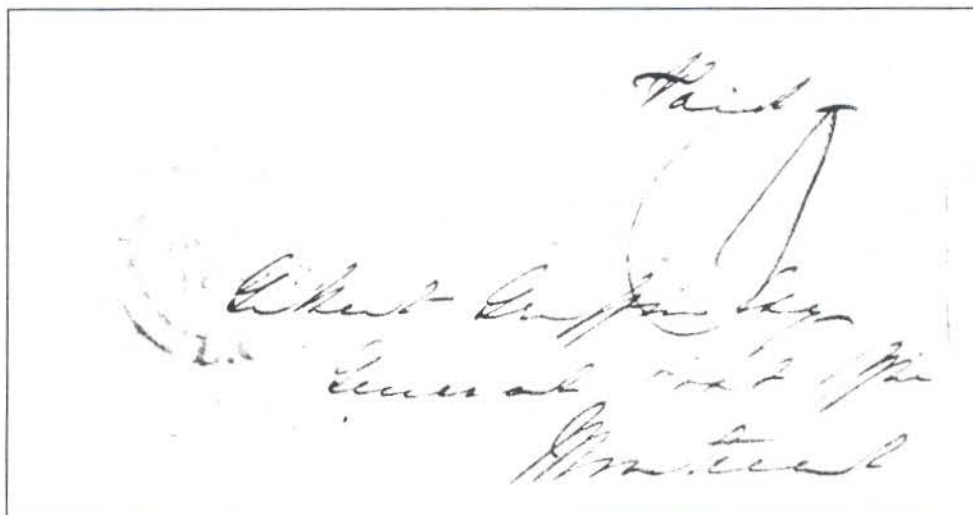 Paid
Gilbert Griffin Esq
General Post Office
Montreal
L.C